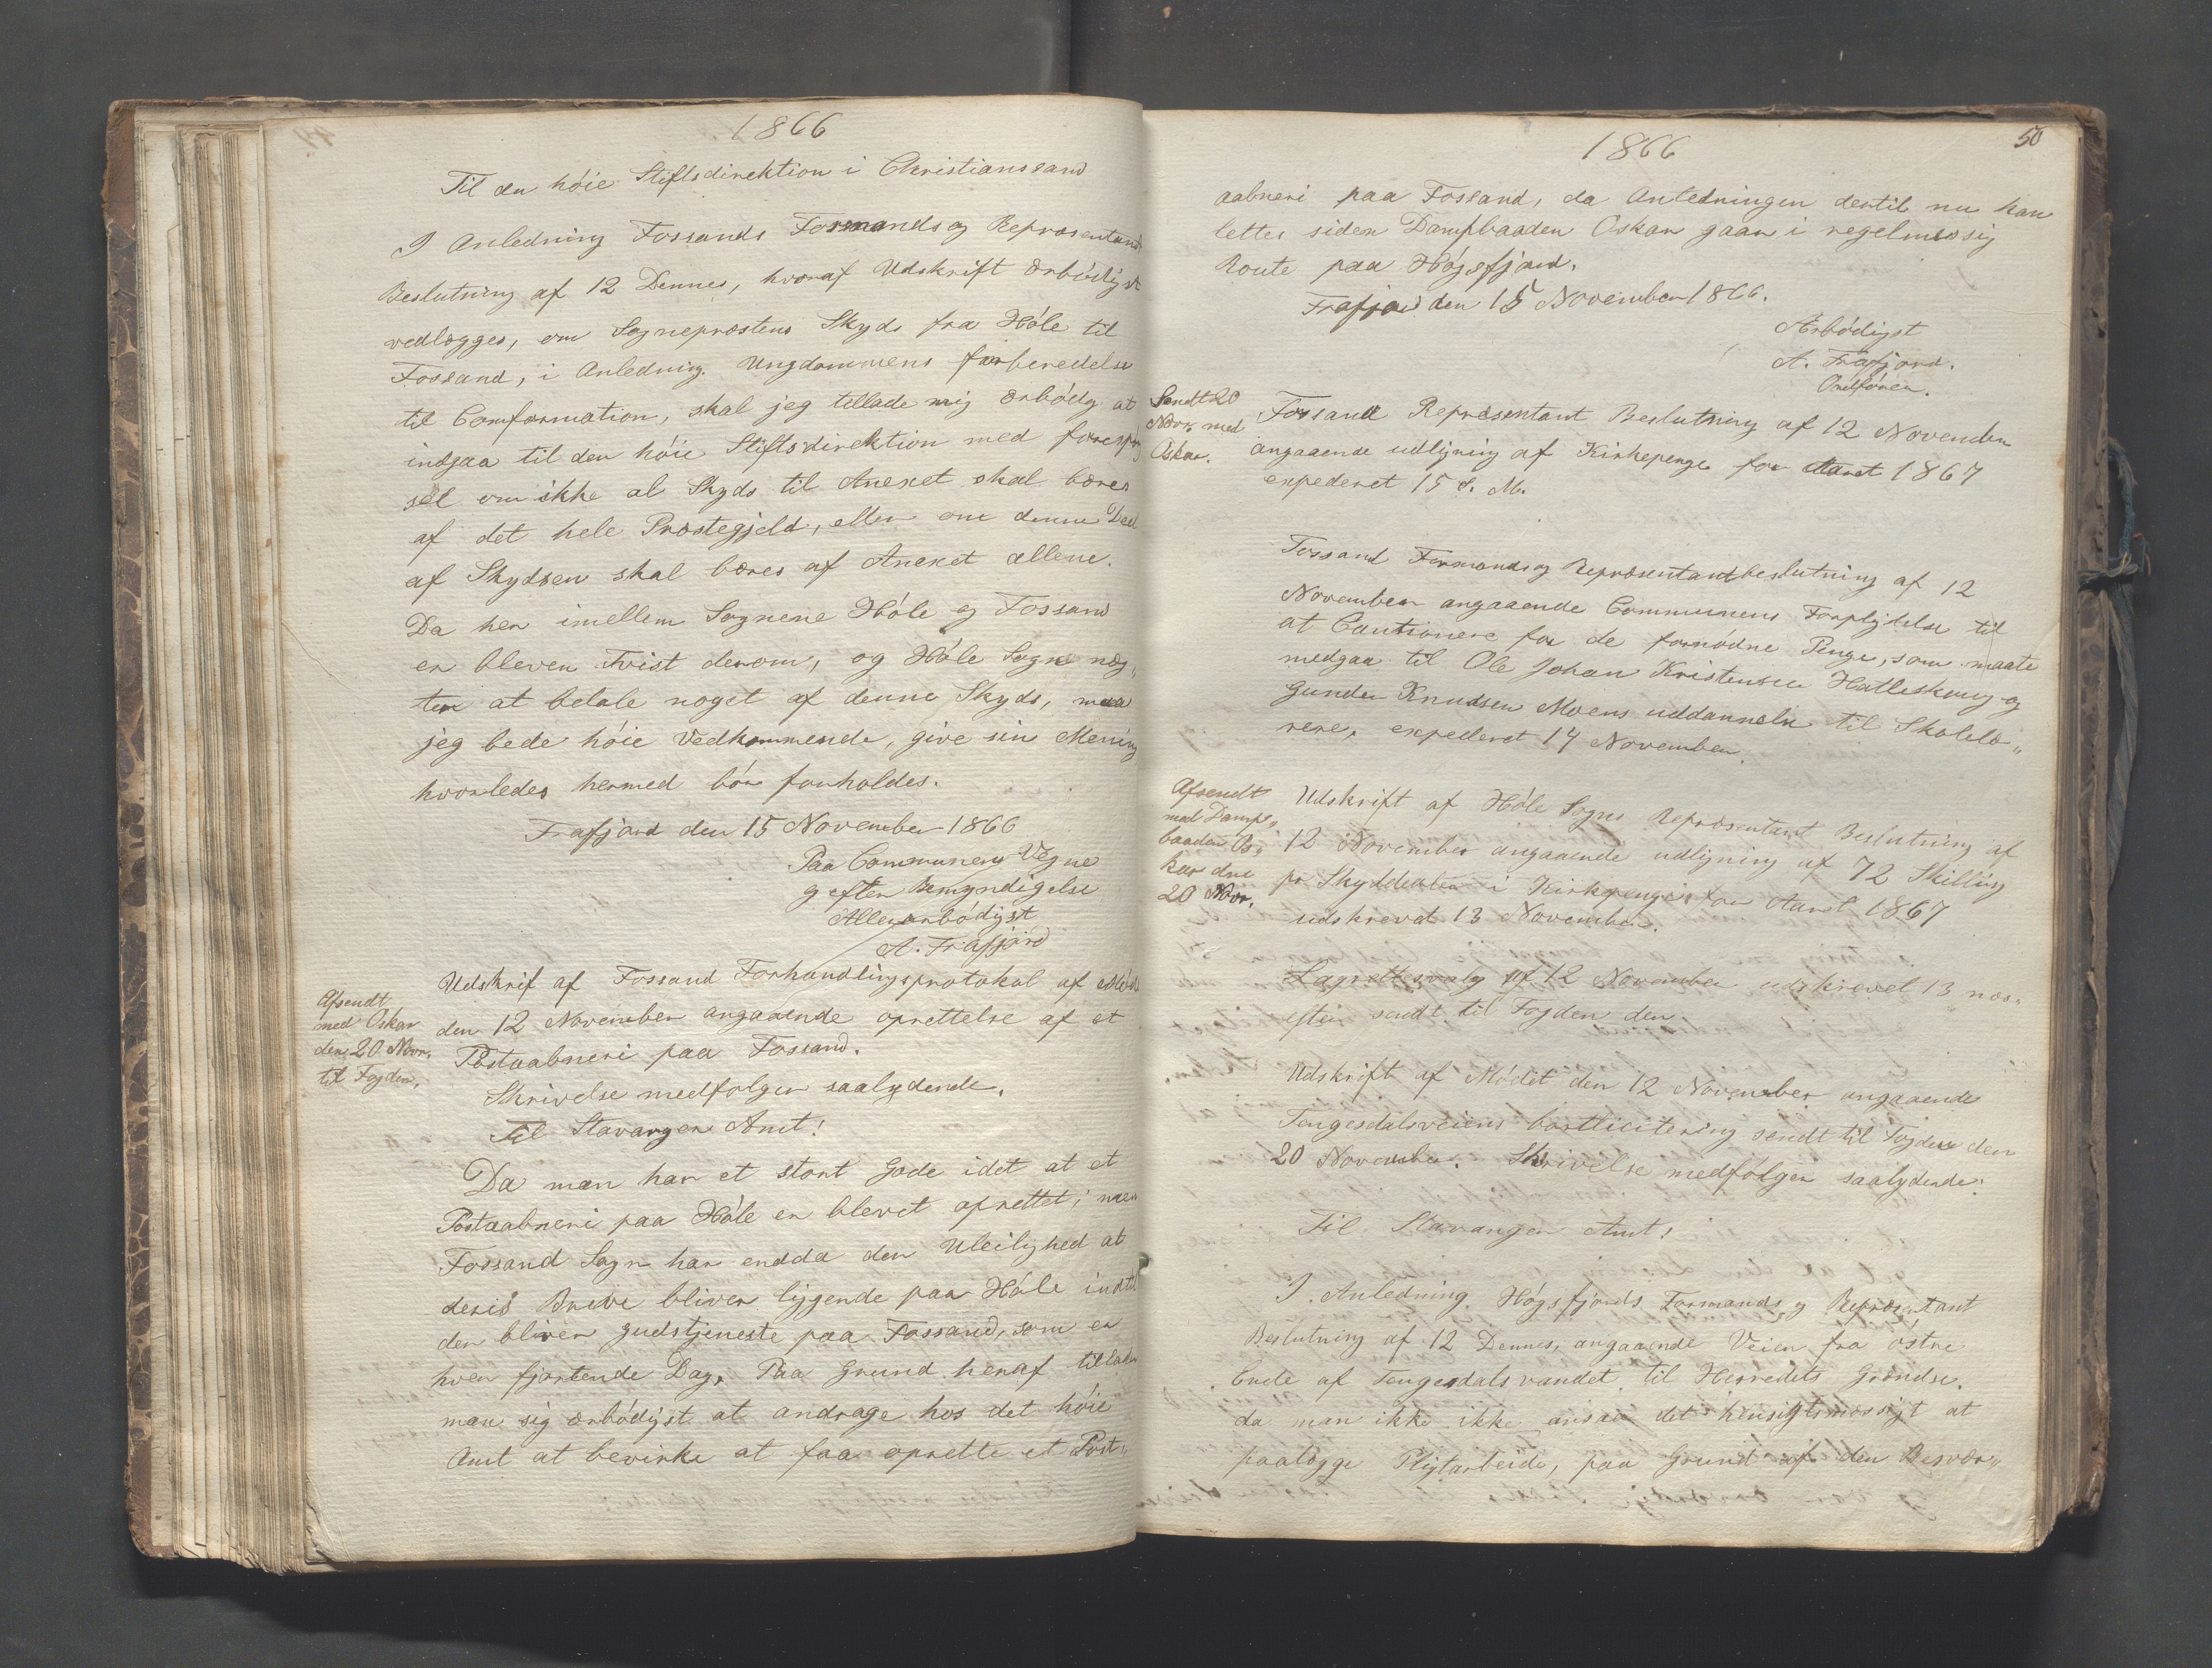 1866
Til den høie Stiftsdirektion i Christianssand
I Anledning Fossands Formands og Repræsentant
Beslutning af 12 Dennes, hvoraf Udskrift ærbødigst
vedlægges, om Sogneprestens Skyds fra Høle til
Fossand, i Anledning Ungdommens forberedelse
til Comformation, skal jeg tillade mig ærbødg at
indgaa til den høie Stiftsdirektion med forespørg
sel om ikke al Skyds til Anexet skal bæres
af det hele Præstegjeld, eller om denne Deel
af Skydsen skal bæres af Anexet allene.
Da her imellem Sognene Høle og Fossand
er bleven Tvist derom, og Høle Sogn næg„
ter at betale noget af denne Skyds, maa
jeg bede høie Vedkommende, give sin Mening
hvorledes hermed bør forholdes.
Frafjord den 15 November 1866
Paa Communens Vegne
og efter Bemyndigelse
Allerærbødigst
A. Frafjord
Afsendt
med Oskar
den 20 Nov.
til Fogden.
Udskrif af Fossand Forhandlingsprotokol af Møde
den 12 November angaaende oprettelse af et
Postaabneri paa Fossand.
Skrivelse medfølger saalydende.
Til Stavanger Amt!
Da man har et stort Gode idet at et
Postaabneri paa Høle er blevet oprettet, men
Fossand Sogn har endda den Uleilighed at
deris Breve bliver liggende paa Høle indtil
der bliver gudstjeneste paa Fossand, som er
hver fjortende Dag, Paa Grund heraf tillader
man sig ærbødigst at andrage hos det høie
Amt at bevirke at faa oprette et Post„
50
1866
aabneri paa Fossand, da Anledningen dertil nu kan
lettes siden Dampbaaden Oskar gaar i regelmæssig
Route paa Høgsfjord.
Frafjord den 15 November 1866.
Ærbødigst
A. Frafjord.
Ordfører.
Sendt 20
Nov. med
Oskar.
Fossand Repræsentant Beslutning af 12 November
angaaende udligning af Kirkepenge for Aaret 1867
expederet 15 d. M.
Fossand Formands og Repræsentantbeslutning af 12
November angaaende Communens Forplgtelse til
at Cautionere for de fornødne Penge, som maate
medgaa til Ole Johan Kristensen Hatleskaug og
Gunder Knudsen Moens uddannelse til Skolelæ„
rere, expederet 14 November.
Afsendt
med Damp„
baaden Os„
kar dne
20 Nov.
Udskrift af Høle Sogns Repræsentant Beslutning af
12 November angaaende udligning af 72 Skilling
pr Skylddaler i Kirkepenge for Aaret 1867
udskrevet 13 November.
Lagrettesvalg af 12 November udskrevet 13 næs„
efter sendt til Fogden den
Udskrift af Mødet den 12 November angaaende
Tengesdalsveiens bortlicitering sendt til Fogden den
20 November. Skrivelse medfølger saalydende:
Til Stavanger Amt!
I Anledning Høgsfjords Formands og Repræsentant
Beslutning af 12 Dennes, angaaende Veien fra østre
Ende af Tengesdalsvandet til Herredets Grændse,
da man ikke ikke ansaa det hensigtsmæssigt at
paalægge Pligtarbeide, paa Grund af den Besvær„